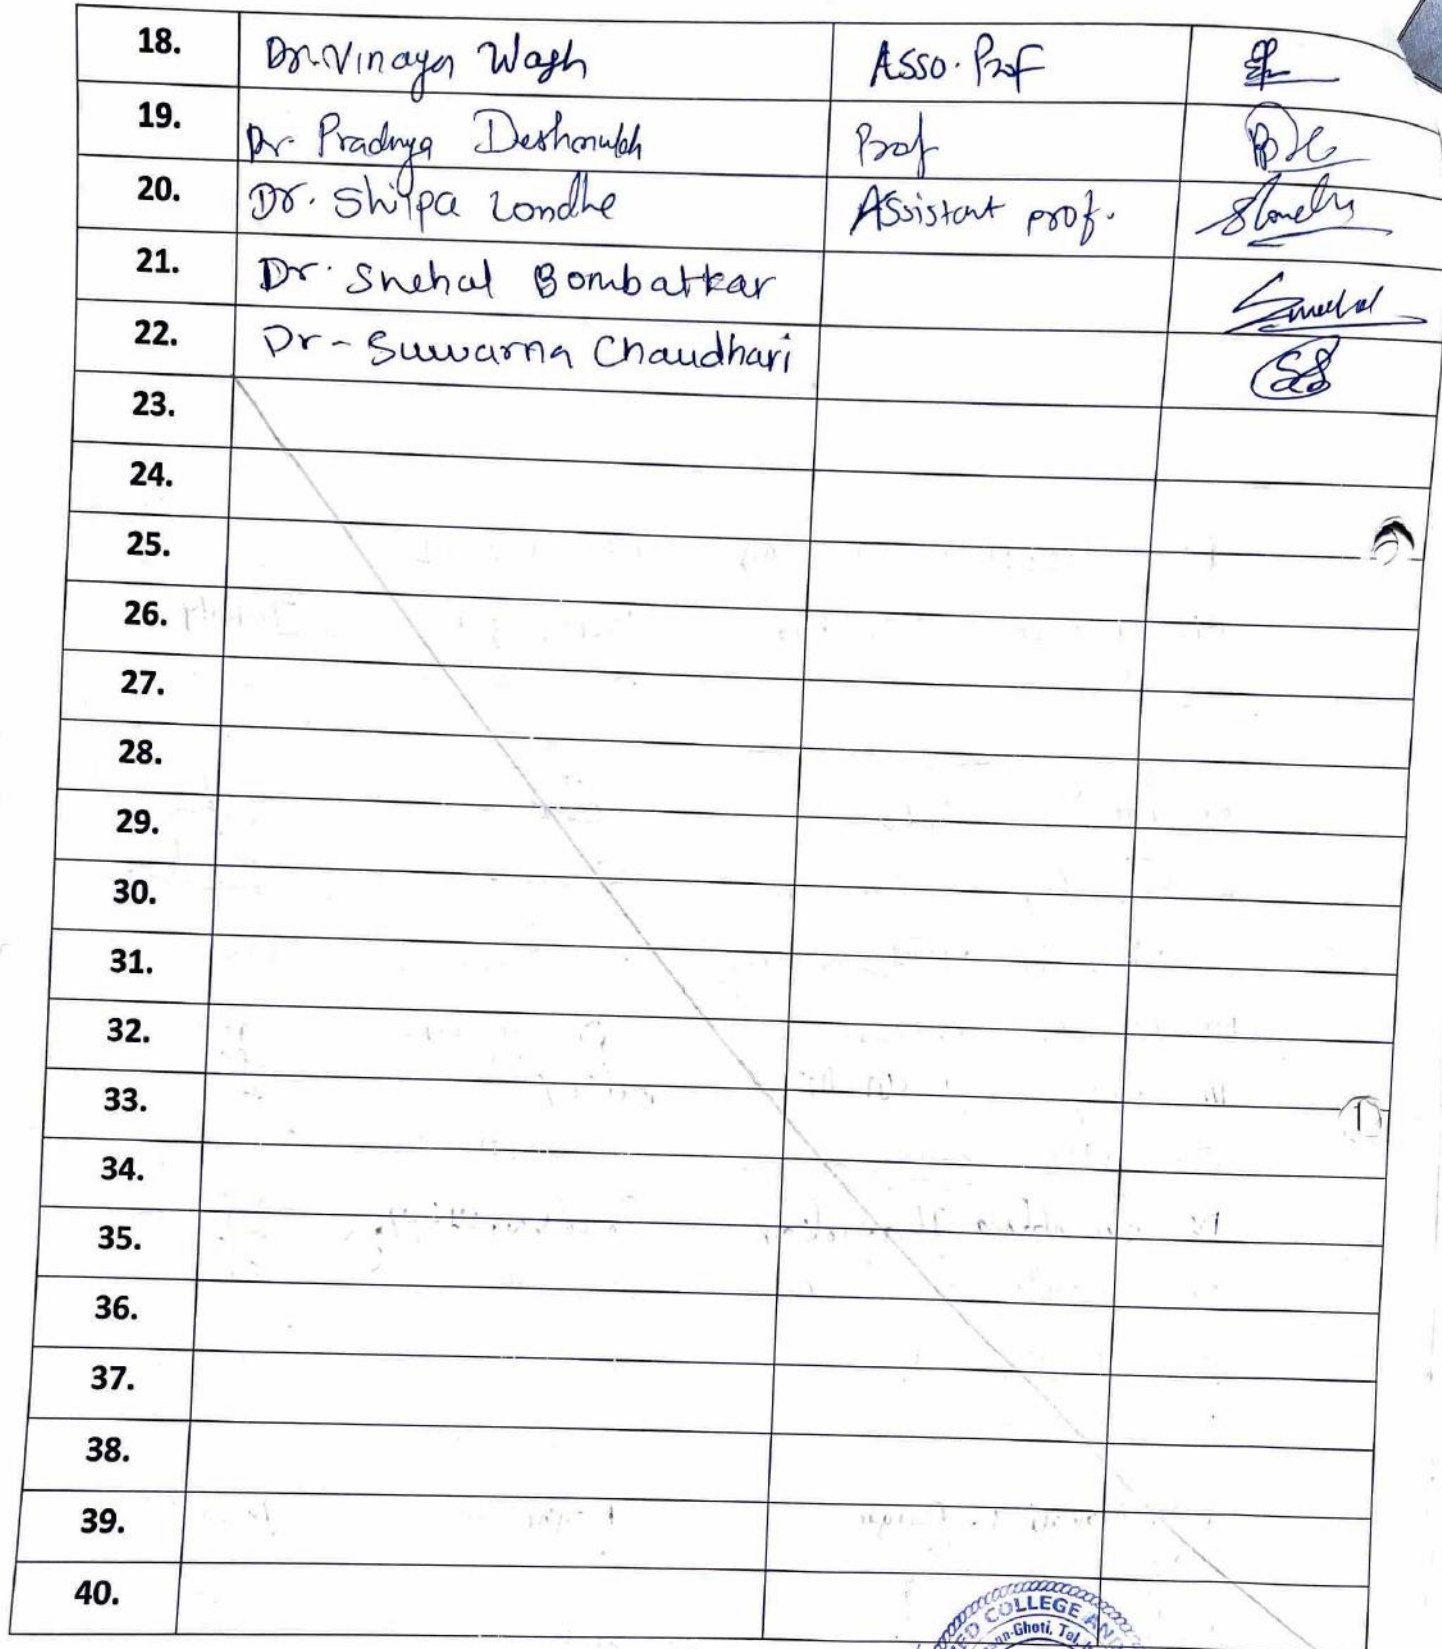 18. Dr. Vinaya Wagh Asso. Prof
19. Dr. Pradnya Deshmukh Prof
20. Dr. Shilpa Londhe Assistant prof.
21. Dr. Snehal Bombatkar Snehal
22. Dr - Suwarna Chaudhari
23.
24.
25.
26.
27.
28.
29.
30.
31.
32.
33.
34.
35.
36.
37.
38.
39.
40.
COLLEGE AND
Ghoti, Tal.